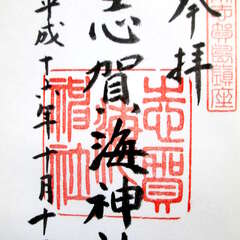 奉拝
志賀海神社
平成十六年十月十
志賀海神社